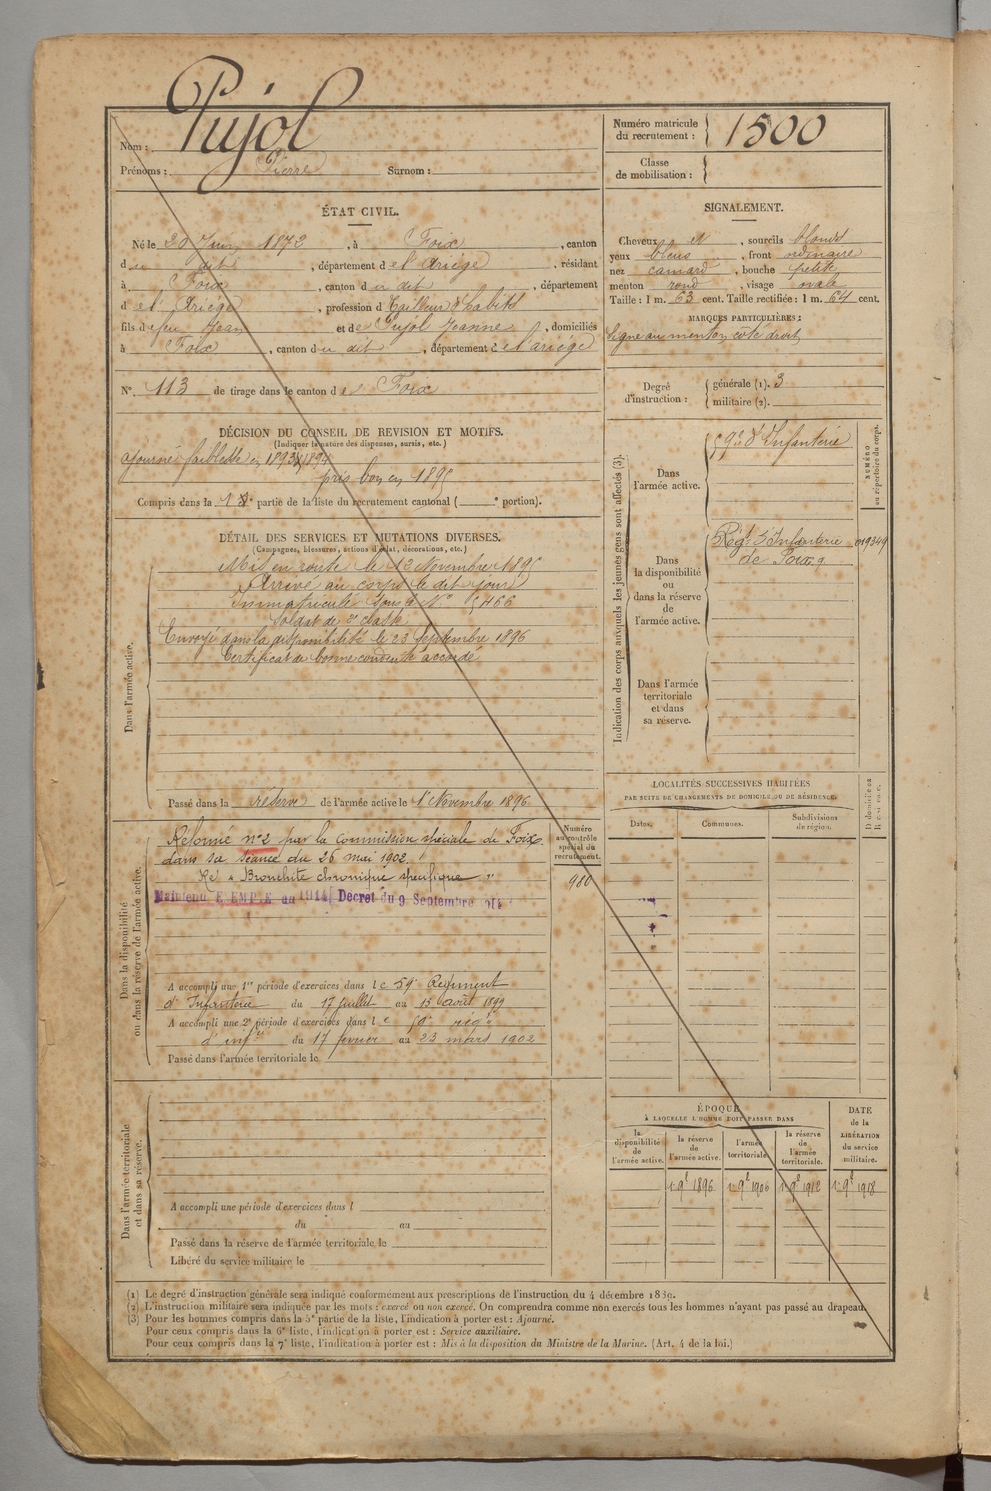 Pujol
Nom :
Prénoms : Pierre Surnom :
Numéro matricule du recrutement : 1500
Classe de mobilisation :
ÉTAT CIVIL.
Né le 20 Juin 1872, à Foix, canton
du dit, département de l'Ariège, résidant
à Foix, canton du dit, département
de l'Ariège, profession d Tailleur d'habits
fils de feu Jean et de Pujol Jeanne, domiciliés
à Foix, canton du dit, département de l'ariége
N° 113 de tirage dans le canton de Foix
DÉCISION DU CONSEIL DE REVISION ET MOTIFS.
(Indiquer la nature des dispenses, sursis, etc.)
ajourné faiblesse en 1893 1894
pris bon en 1895
Compris dans la 1e partie de la liste du recrutement cantonal ( e portion).
DÉTAIL DES SERVICES ET MUTATIONS DIVERSES.
(Campagnes, blessures, actions d'éclat, décorations, etc.)
Dans l'armée active.
Mis en route le 12 Novembre 1895
Arrivé au corps le dit jour
Immatriculé sous le N° 5466
Soldat de 2e classe
Envoyé dans la disponibilité le 23 Septembre 1896
Certificat de bonne conduite accordé
Passé dans la réserve de l'armée active le 1er Novembre 1896
Dans la disponibilité
ou dans la réserve de l'armée active.
Numéro au contrôle spécial du recrutement.
980
Réformé n°2 par la Commission spéciale de Foix
dans sa séance du 26 mai 1902.
"Bronchite chronique spécifique"
Maintenu EXEMPTE au 1914 Décret du 9 Septembre 1914
A accompli une 1re période d'exercices dans le 59e Régiment
d'Infanterie du 17 juillet au 13 août 1899
A accompli une 2e période d'exercices dans le 59e rég
d'infie du 17 février au 23 mars 1902
Passé dans l'armée territoriale le
Dans l'armée territoriale
et dans sa réserve.
A accompli une période d'exercices dans l
du au
Passé dans la réserve de l'armée territoriale le
Libéré du service militaire le
SIGNALEMENT.
Cheveux et, sourcils blonds
yeux bleus, front ordinaire
nez camard, bouche petite
menton rond, visage ovale
Taille : 1 m. 63 cent. Taille rectifiée : 1 m. 64 cent.
MARQUES PARTICULIÈRES :
Signe au menton coté droit
Degré d'instruction : générale (1). 3
militaire (2).
Indication des corps auxquels les jeunes gens sont affectés (3).
NUMÉRO au répertoire du corps.
Dans l'armée active.
59e d'Infanterie
Dans la disponibilité ou dans la réserve de l'armée active.
Régt d'Infanterie 019349
de Foix
Dans l'armée territoriale et dans sa réserve.
LOCALITÉS SUCCESSIVES HABITÉES
PAR SUITE DE CHANGEMENTS DE DOMICILE OU DE RÉSIDENCE.
Dates. Communes. Subdivisions de région. D domicile ou R résidence.
ÉPOQUE
À LAQUELLE L'HOMME DOIT PASSER DANS
la disponibilité de l'armée active. la réserve de l'armée active. l'armée territoriale. la réserve de l'armée territoriale.
DATE de la LIBÉRATION du service militaire.
1er 9bre 1896 1er 9bre 1906 1er 9bre 1912 1er 9bre 1918
(1) Le degré d'instruction générale sera indiqué conformément aux prescriptions de l'instruction du 4 décembre 1889.
(2) L'instruction militaire sera indiquée par les mots : exercé ou non exercé. On comprendra comme non exercés tous les hommes n'ayant pas passé au drapeau.
(3) Pour les hommes compris dans la 5e partie de la liste, l'indication à porter est : Ajourné.
Pour ceux compris dans la 6e liste, l'indication à porter est : Service auxiliaire.
Pour ceux compris dans la 7e liste, l'indication à porter est : Mis à la disposition du Ministre de la Marine. (Art. 4 de la loi.)